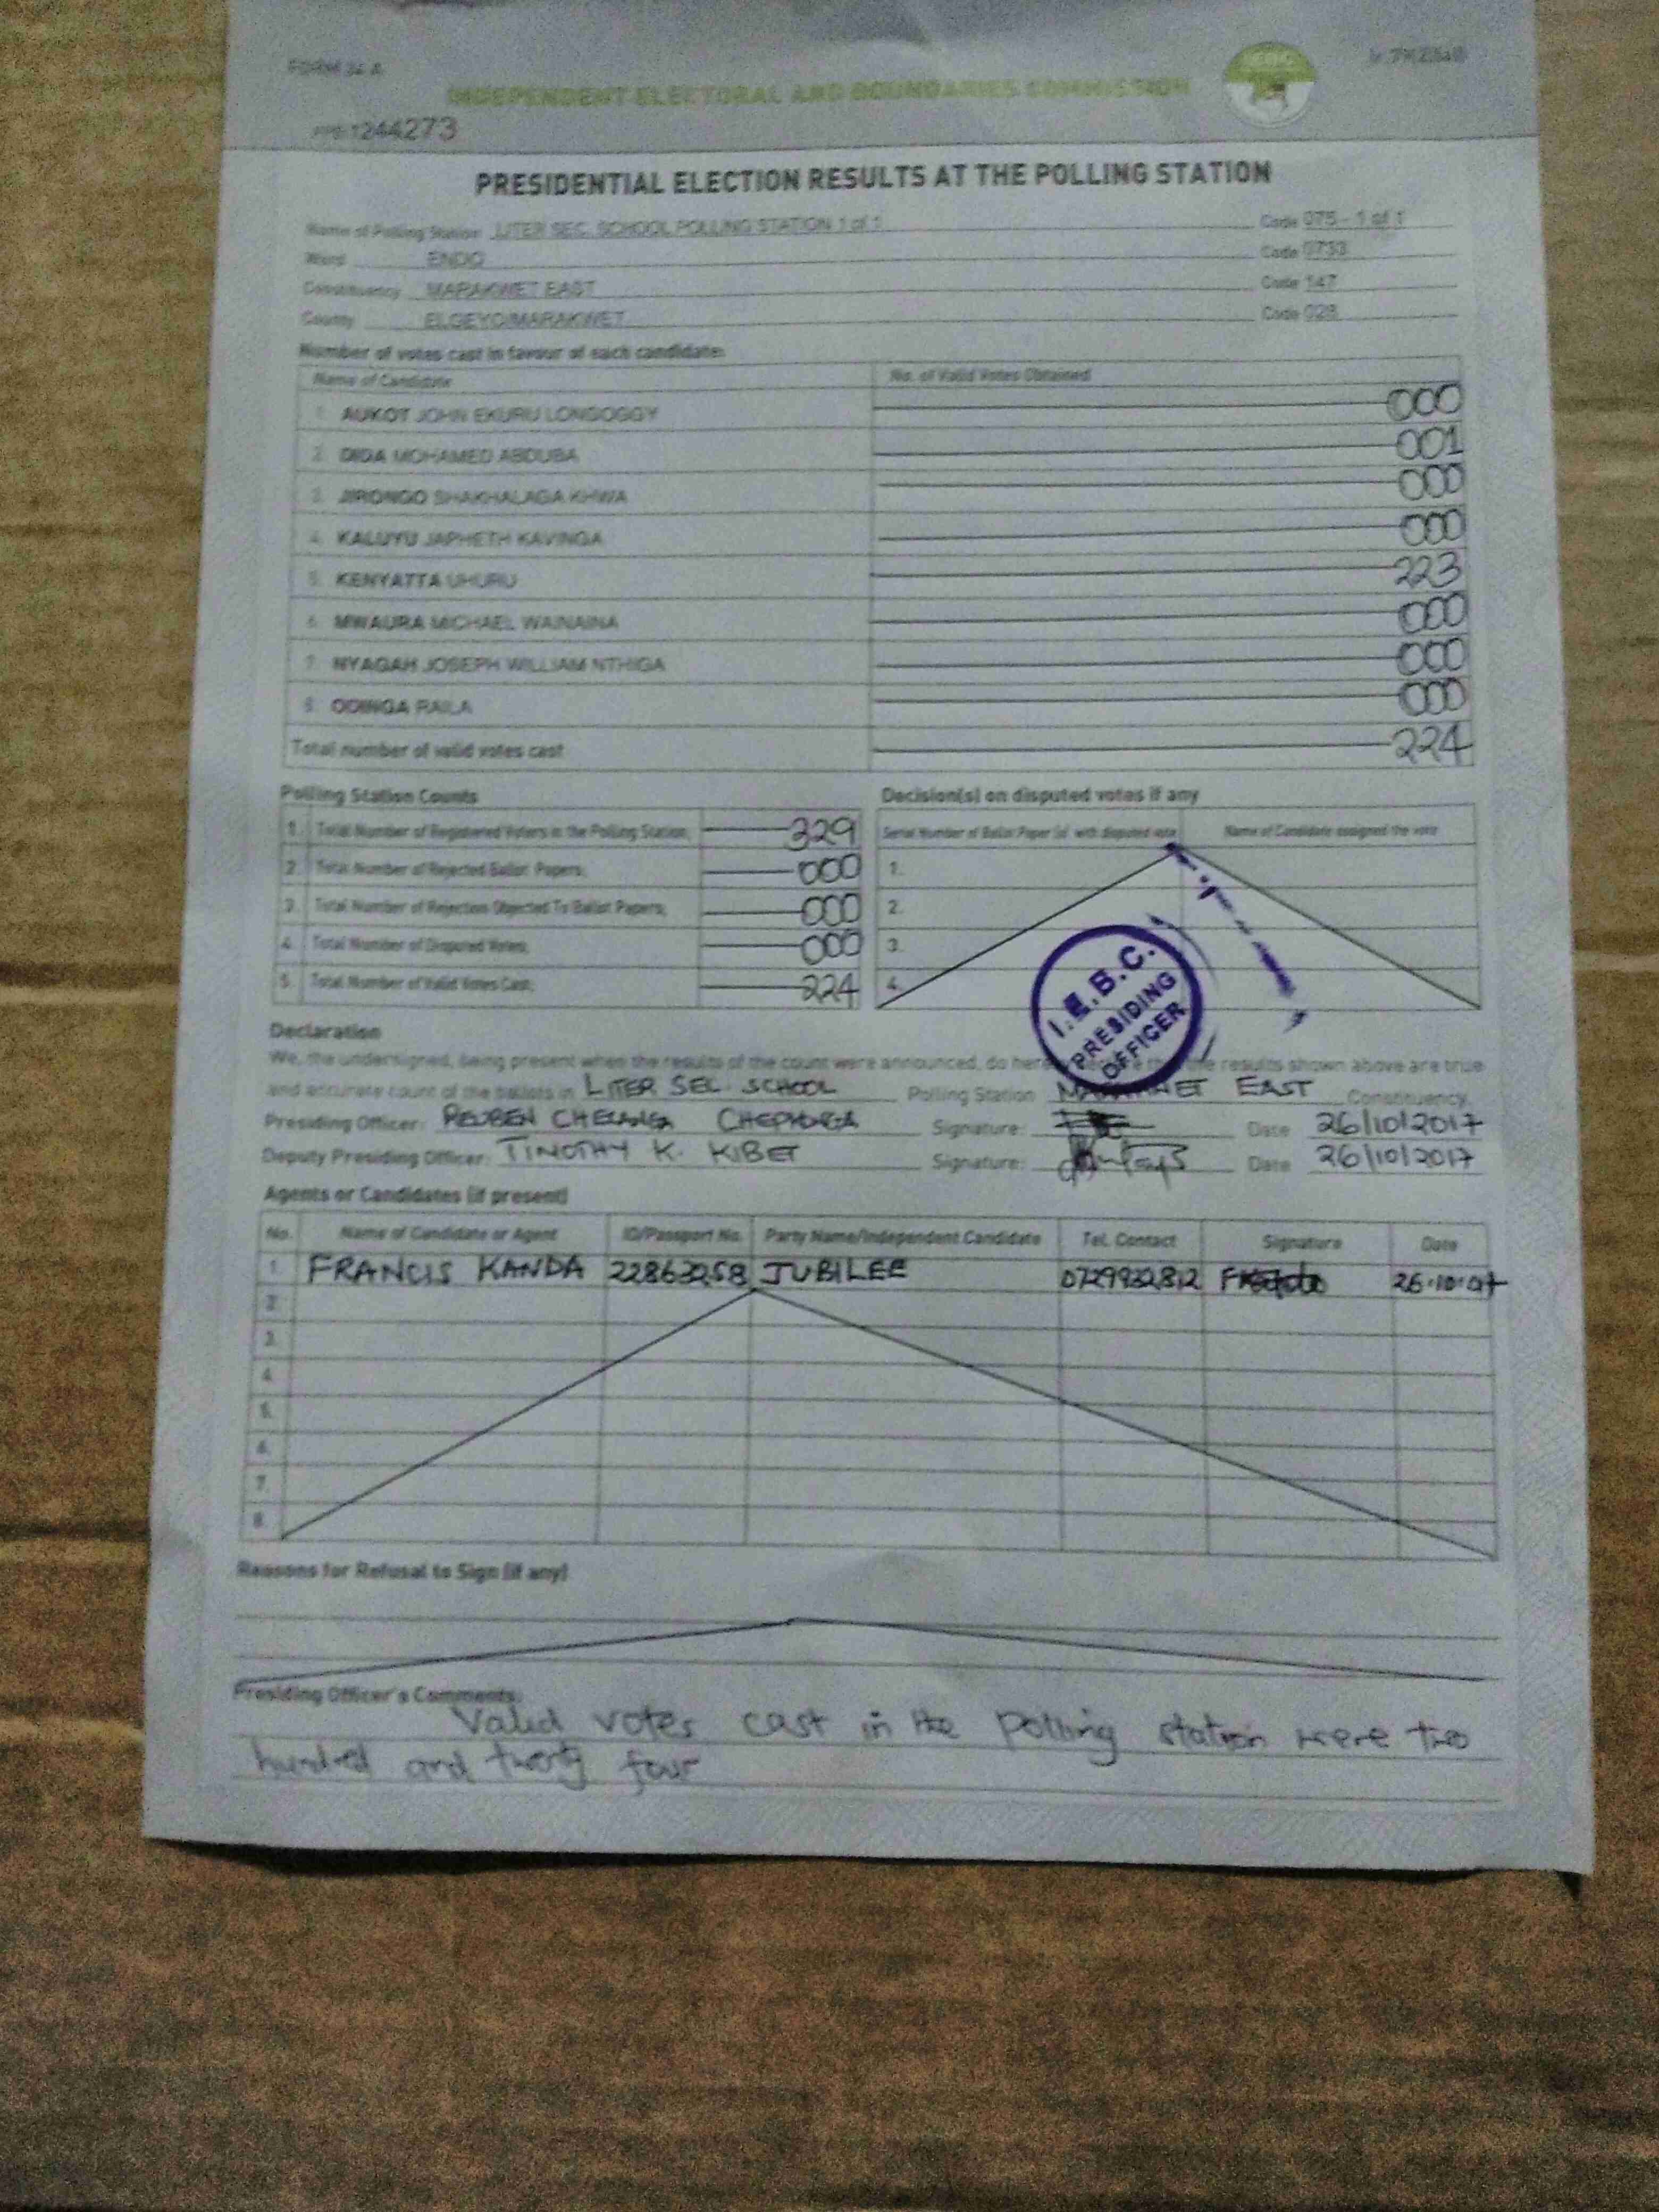 FORM 34 A
INDEPENDENT ELECTORAL AND BOUNDARIES COMMISSION
1244273
PRESIDENTIAL ELECTION RESULTS AT THE POLLING STATION
Name of Polling Station LITER SEC. SCHOOL POLLING STATION 1 of 1 Code 075 - 1 of 1
Ward ENDO Code 0733
Constituency MARAKWET EAST Code 147
County ELGEYO/MARAKWET Code 028
Number of votes cast in favour of each candidate:
Name of Candidate No. of Valid Votes Obtained
1. AUKOT JOHN EKURU LONGOGGY 000
2. DIDA MOHAMED ABDUBA 001
3. JIRONGO SHAKHALAGA KHWA 000
4. KALUYU JAPHETH KAVINGA 000
5. KENYATTA UHURU 223
6. MWAURA MICHAEL WAINAINA 000
7. NYAGAH JOSEPH WILLIAM NTHIGA 000
8. ODINGA RAILA 000
Total number of valid votes cast 224
Polling Station Counts
1. Total Number of Registered Voters in the Polling Station; 329
2. Total Number of Rejected Ballot Papers; 000
3. Total Number of Rejection Objected To Ballot Papers; 000
4. Total Number of Disputed Votes; 000
5. Total Number of Valid Votes Cast; 224
Decision(s) on disputed votes if any
Serial Number of Ballot Paper (s) with disputed vote Name of Candidate assigned the vote
1.
2.
3.
4.
I.E.B.C.
PRESIDING
OFFICER
Declaration
We, the undersigned, being present when the results of the count were announced, do the results shown above are true
and accurate count of the ballots in LITER SEC. SCHOOL Polling Station MARAKWET EAST Constituency.
Presiding Officer: REUBEN Signature: Date 26/10/2017
Deputy Presiding Officer: TIMOTHY K. KIBET Signature: Date 26/10/2017
Agents or Candidates (if present)
No. Name of Candidate or Agent ID/Passport No. Party Name/Independent Candidate Tel. Contact Signature Date
1. FRANCIS KANDA 22863258 JUBILEE 0729932812 26.10.017
2.
3.
4.
5.
6.
7.
8.
Reasons for Refusal to Sign (if any)
Presiding Officer's Comments:
Valid votes cast in the polling station were two
hundred and twenty four